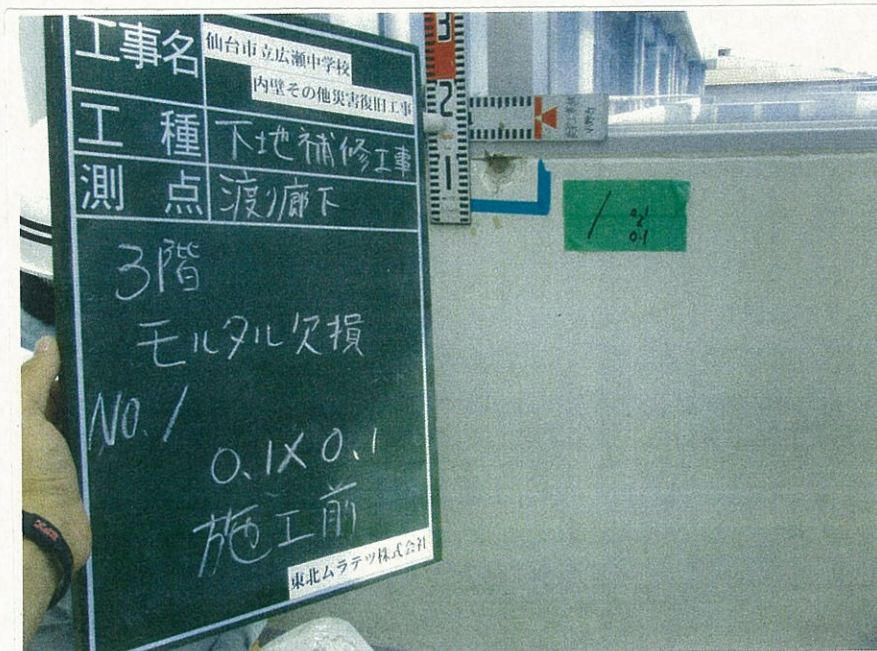 工事名 仙台市立広瀬中学校
内壁その他災害復旧工事
工種 下地補修工事
測点 渡り廊下
3階
モルタル欠損
No.1
0.1×0.1
施工前
東北ムラテツ株式会社
3
2
1
1
0.1
0.1